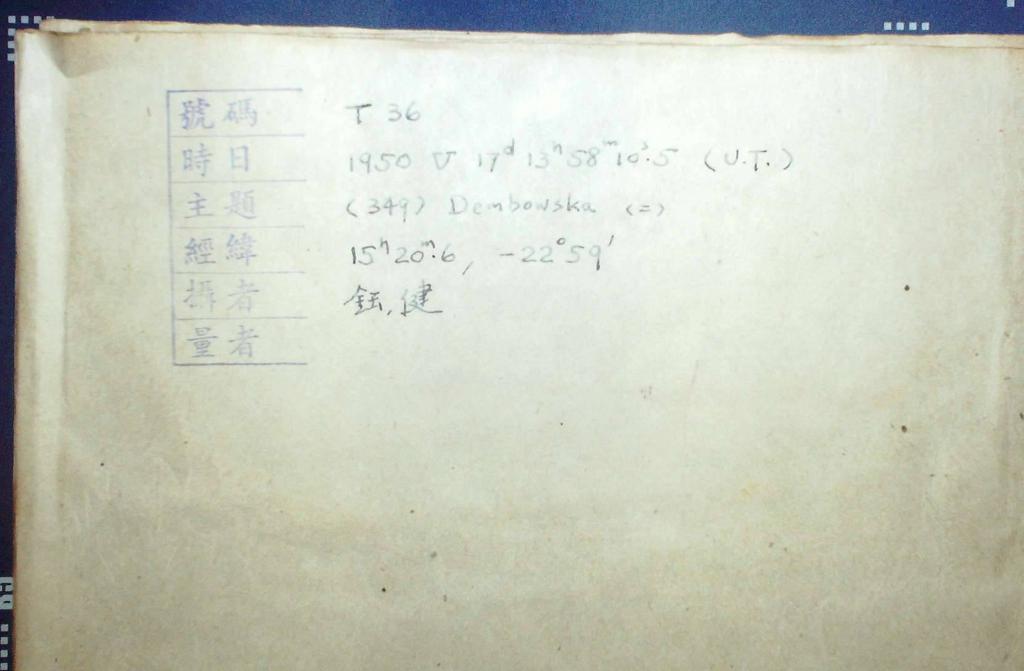 號碼 T 36
時日 1950 V 17ᵈ 13ʰ 58ᵐ 10ˢ.5 (U.T.)
主題 (349) Dembowska (=)
經緯 15ʰ20ᵐ.6, -22°59'
攝者 鈺,健
量者